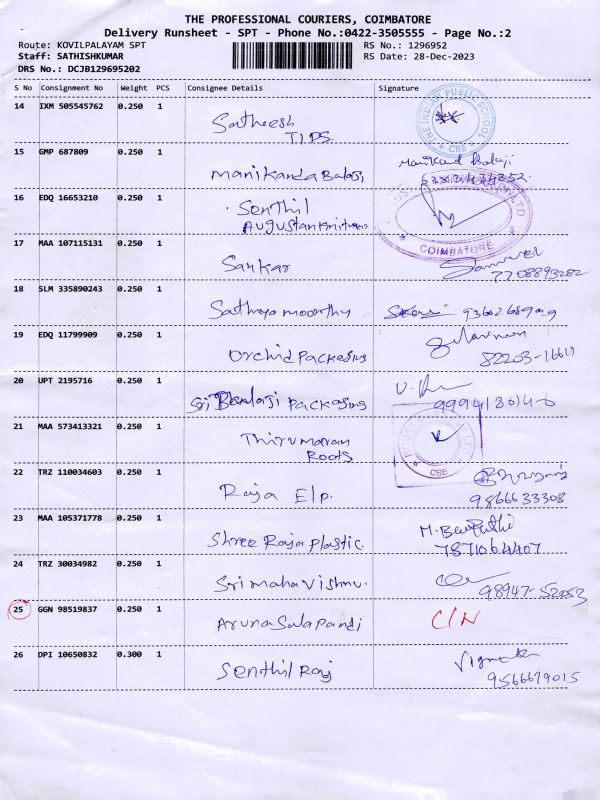 THE PROFESSIONAL COURIERS, COIMBATORE
Delivery Runsheet - SPT - Phone No.:0422-3505555 - Page No.:2
Route: KOVILPALAYAM SPT
RS No.: 1296952
Staff: SATHISHKUMAR
RS Date: 28-Dec-2023
DRS No.: DCJB129695202
S No Consignment No Weight PCS Consignee Details Signature
14 IXM 505545762 0.250 1 Satheesh
TIPS.
THE INDIAN PUBLIC SCHOOL
CBE
15 GMP 687809 0.250 1 Manikanda Balaji
16 EDQ 16653210 0.250 1 Senthil
Augustan
LTD
COIMBATORE
17 MAA 107115131 0.250 1 Sankar
7708893282
18 SLM 335890243 0.250 1 Sathya moorthy
19 EDQ 11799909 0.250 1 Orchid Packaging
20 UPT 2195716 0.250 1 Sri Balaji Packaging
21 MAA 573413321 0.250 1 Thirumaram
Roots
CBE
22 TRZ 110034603 0.250 1 Raja Elp.
9866633308
23 MAA 105371778 0.250 1 Shree Raja Plastic.
7871064407
24 TRZ 30034982 0.250 1 Sri maha Vishnu.
98947-52053
25 GGN 98519837 0.250 1 Aruna Sala Pandi C/N
26 DPI 10650832 0.300 1 Senthil Raj
9566679015